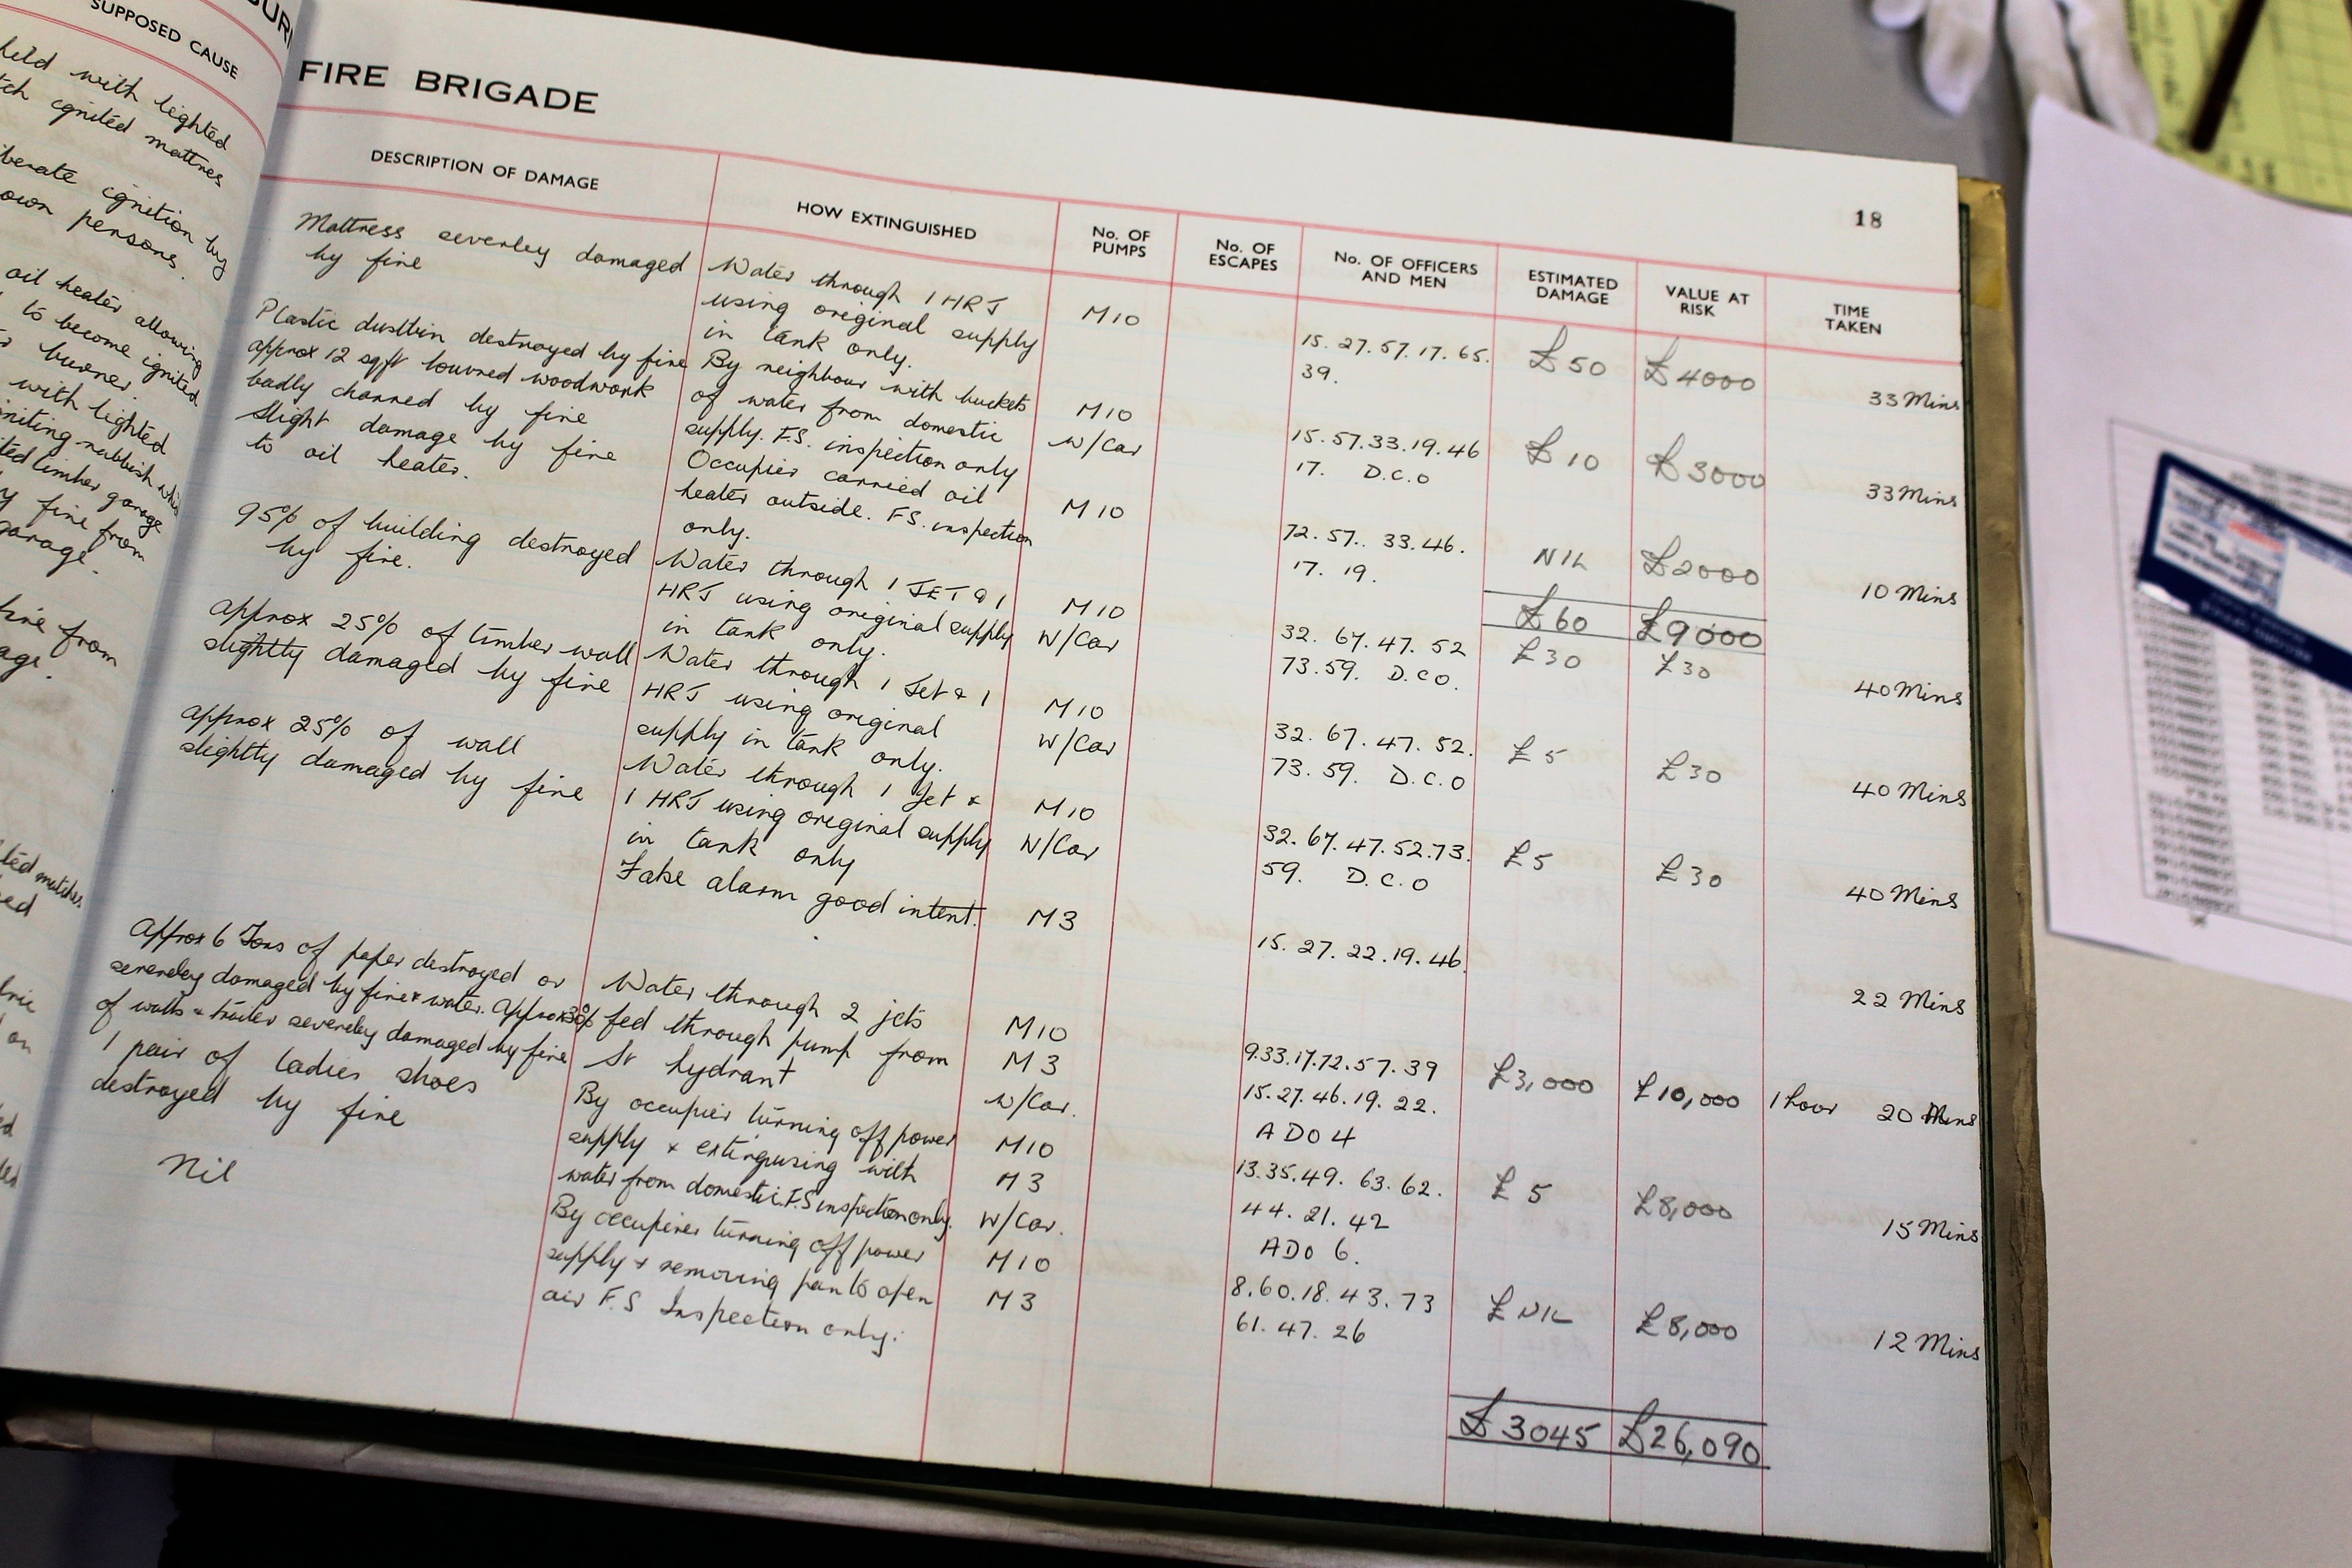 SUPPOSED CAUSE
held with lighted
ignited mattres
ignition by
own persons.
oil heater allowing
to become ignited
burner.
with lighted
rubbish
timber garage
fire from
garage.
fire from
matches
FIRE BRIGADE
18
DESCRIPTION OF DAMAGE
HOW EXTINGUISHED
No. OF PUMPS
No. OF ESCAPES
No. OF OFFICERS AND MEN
ESTIMATED DAMAGE
VALUE AT RISK
TIME TAKEN
Mattress severley damaged
by fire
Water through 1 HRJ
using original supply
in tank only.
M10
15. 27. 57. 17. 65.
39.
£50
£4000
33 Mins
Plastic dustbin destroyed by fire
approx 12 sqft louvred woodwork
badly charred by fire
By neighbour with buckets
of water from domestic
supply. F.S. inspection only
M10
W/Car
15. 57. 33. 19. 46
17. D.C.O
£10
£3000
33 Mins
Slight damage by fire
to oil heater.
Occupier carried oil
heater outside. F.S. inspection
only.
M10
72. 57. 33. 46.
17. 19.
NIL
£2000
10 Mins
£60
£9000
95% of building destroyed
by fire.
Water through 1 JET & 1
HRJ using original supply
in tank only.
M10
W/Car
32. 67. 47. 52
73. 59. D.C.O.
£30
£30
40 Mins
approx 25% of timber wall
slightly damaged by fire
Water through 1 Jet & 1
HRJ using original
supply in tank only.
M10
W/Car
32. 67. 47. 52.
73. 59. D.C.O
£5
£30
40 Mins
approx 25% of wall
slightly damaged by fire
Water through 1 Jet &
1 HRJ using original supply
in tank only
M10
W/Car
32. 67. 47. 52. 73.
59. D.C.O
£5
£30
40 Mins
False alarm good intent.
M3
15. 27. 22. 19. 46.
22 Mins
Approx 6 Tons of paper destroyed or
severeley damaged by fire & water. Approx 3%
of walls & trailer severeley damaged by fire
Water through 2 jets
fed through pump from
St hydrant
M10
M3
W/Car.
9.33.17.72.57.39
15.27.46.19.22.
ADO 4
£3,000
£10,000
1 hour 20 Mins
1 pair of ladies shoes
destroyed by fire
By occupier turning off power
supply & extingusing with
water from domestic. F.S inspection only.
M10
M3
W/Car.
13.35.49.63.62.
44. 21. 42
ADO 6.
£5
£8,000
15 Mins
Nil
By occupier turning off power
supply & removing pan to open
air F.S Inspection only.
M10
M3
8.60.18.43.73
61. 47. 26
£ NIL
£8,000
12 Mins
£3045
£26,090